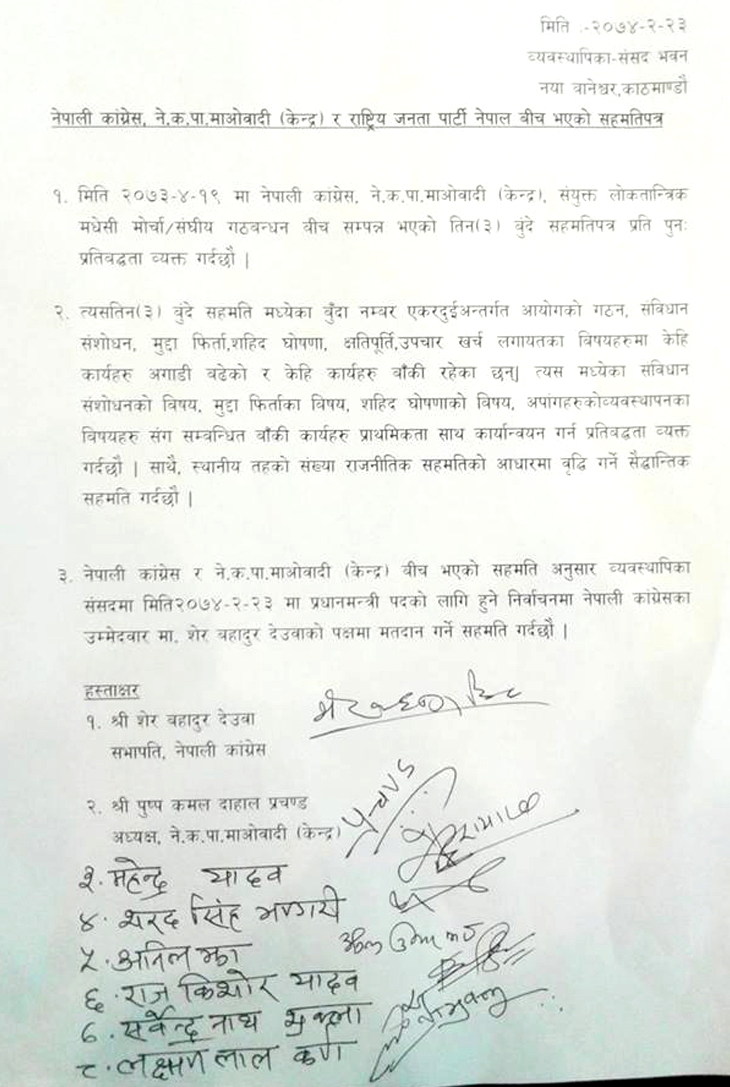 मिति :-२०७४-२-२३
व्यवस्थापिका-संसद भवन
नया वानेश्वर,काठमाण्डौ
नेपाली कांग्रेस, ने.क.पा.माओवादी (केन्द्र) र राष्ट्रिय जनता पार्टी नेपाल बीच भएको सहमतिपत्र
१. मिति २०७३-४-१९ मा नेपाली कांग्रेस, ने.क.पा.माओवादी (केन्द्र), संयुक्त लोकतान्त्रिक
मधेसी मोर्चा/संघीय गठवन्धन बीच सम्पन्न भएको तिन(३) वुंदे सहमतिपत्र प्रति पुनः
प्रतिवद्धता व्यक्त गर्दछौ |
२. त्यसतिन(३) वुंदे सहमति मध्येका वुँदा नम्बर एकरदुईअन्तर्गत आयोगको गठन, संविधान
संशोधन, मुद्दा फिर्ता,शहिद घोषणा, क्षतिपूर्ति,उपचार खर्च लगायतका विषयहरुमा केहि
कार्यहरु अगाडी वढेको र केहि कार्यहरु वाँकी रहेका छन्| त्यस मध्येका संविधान
संशोधनको विषय, मुद्दा फिर्ताका विषय, शहिद घोषणाको विषय, अपांगहरुकोव्यवस्थापनका
विषयहरु संग सम्वन्धित वाँकी कार्यहरु प्राथमिकता साथ कार्यान्वयन गर्न प्रतिवद्धता व्यक्त
गर्दछौ | साथै, स्थानीय तहको संख्या राजनीतिक सहमतिको आधारमा वृद्धि गर्ने सैद्धान्तिक
सहमति गर्दछौ |
३. नेपाली कांग्रेस र ने.क.पा.माओवादी (केन्द्र) वीच भएको सहमति अनुसार व्यवस्थापिका
संसदमा मिति२०७४-२-२३ मा प्रधानमन्त्री पदको लागि हुने निर्वाचनमा नेपाली कांग्रेसका
उम्मेदवार मा. शेर वहादुर देउवाको पक्षमा मतदान गर्ने सहमति गर्दछौ |
हस्ताक्षर
१. श्री शेर वहादुर देउवा
सभापति, नेपाली कांग्रेस
२. श्री पुष्प कमल दाहाल प्रचण्ड
अध्यक्ष, ने.क.पा.माओवादी (केन्द्र)
प्रचण्ड
३. महेन्द्र यादव
४. शरद सिंह भण्डारी
५. अनिल झा
६. राज किशोर यादव
७. सर्वेन्द्र नाथ शुक्ला
८. लक्ष्मण लाल कर्ण